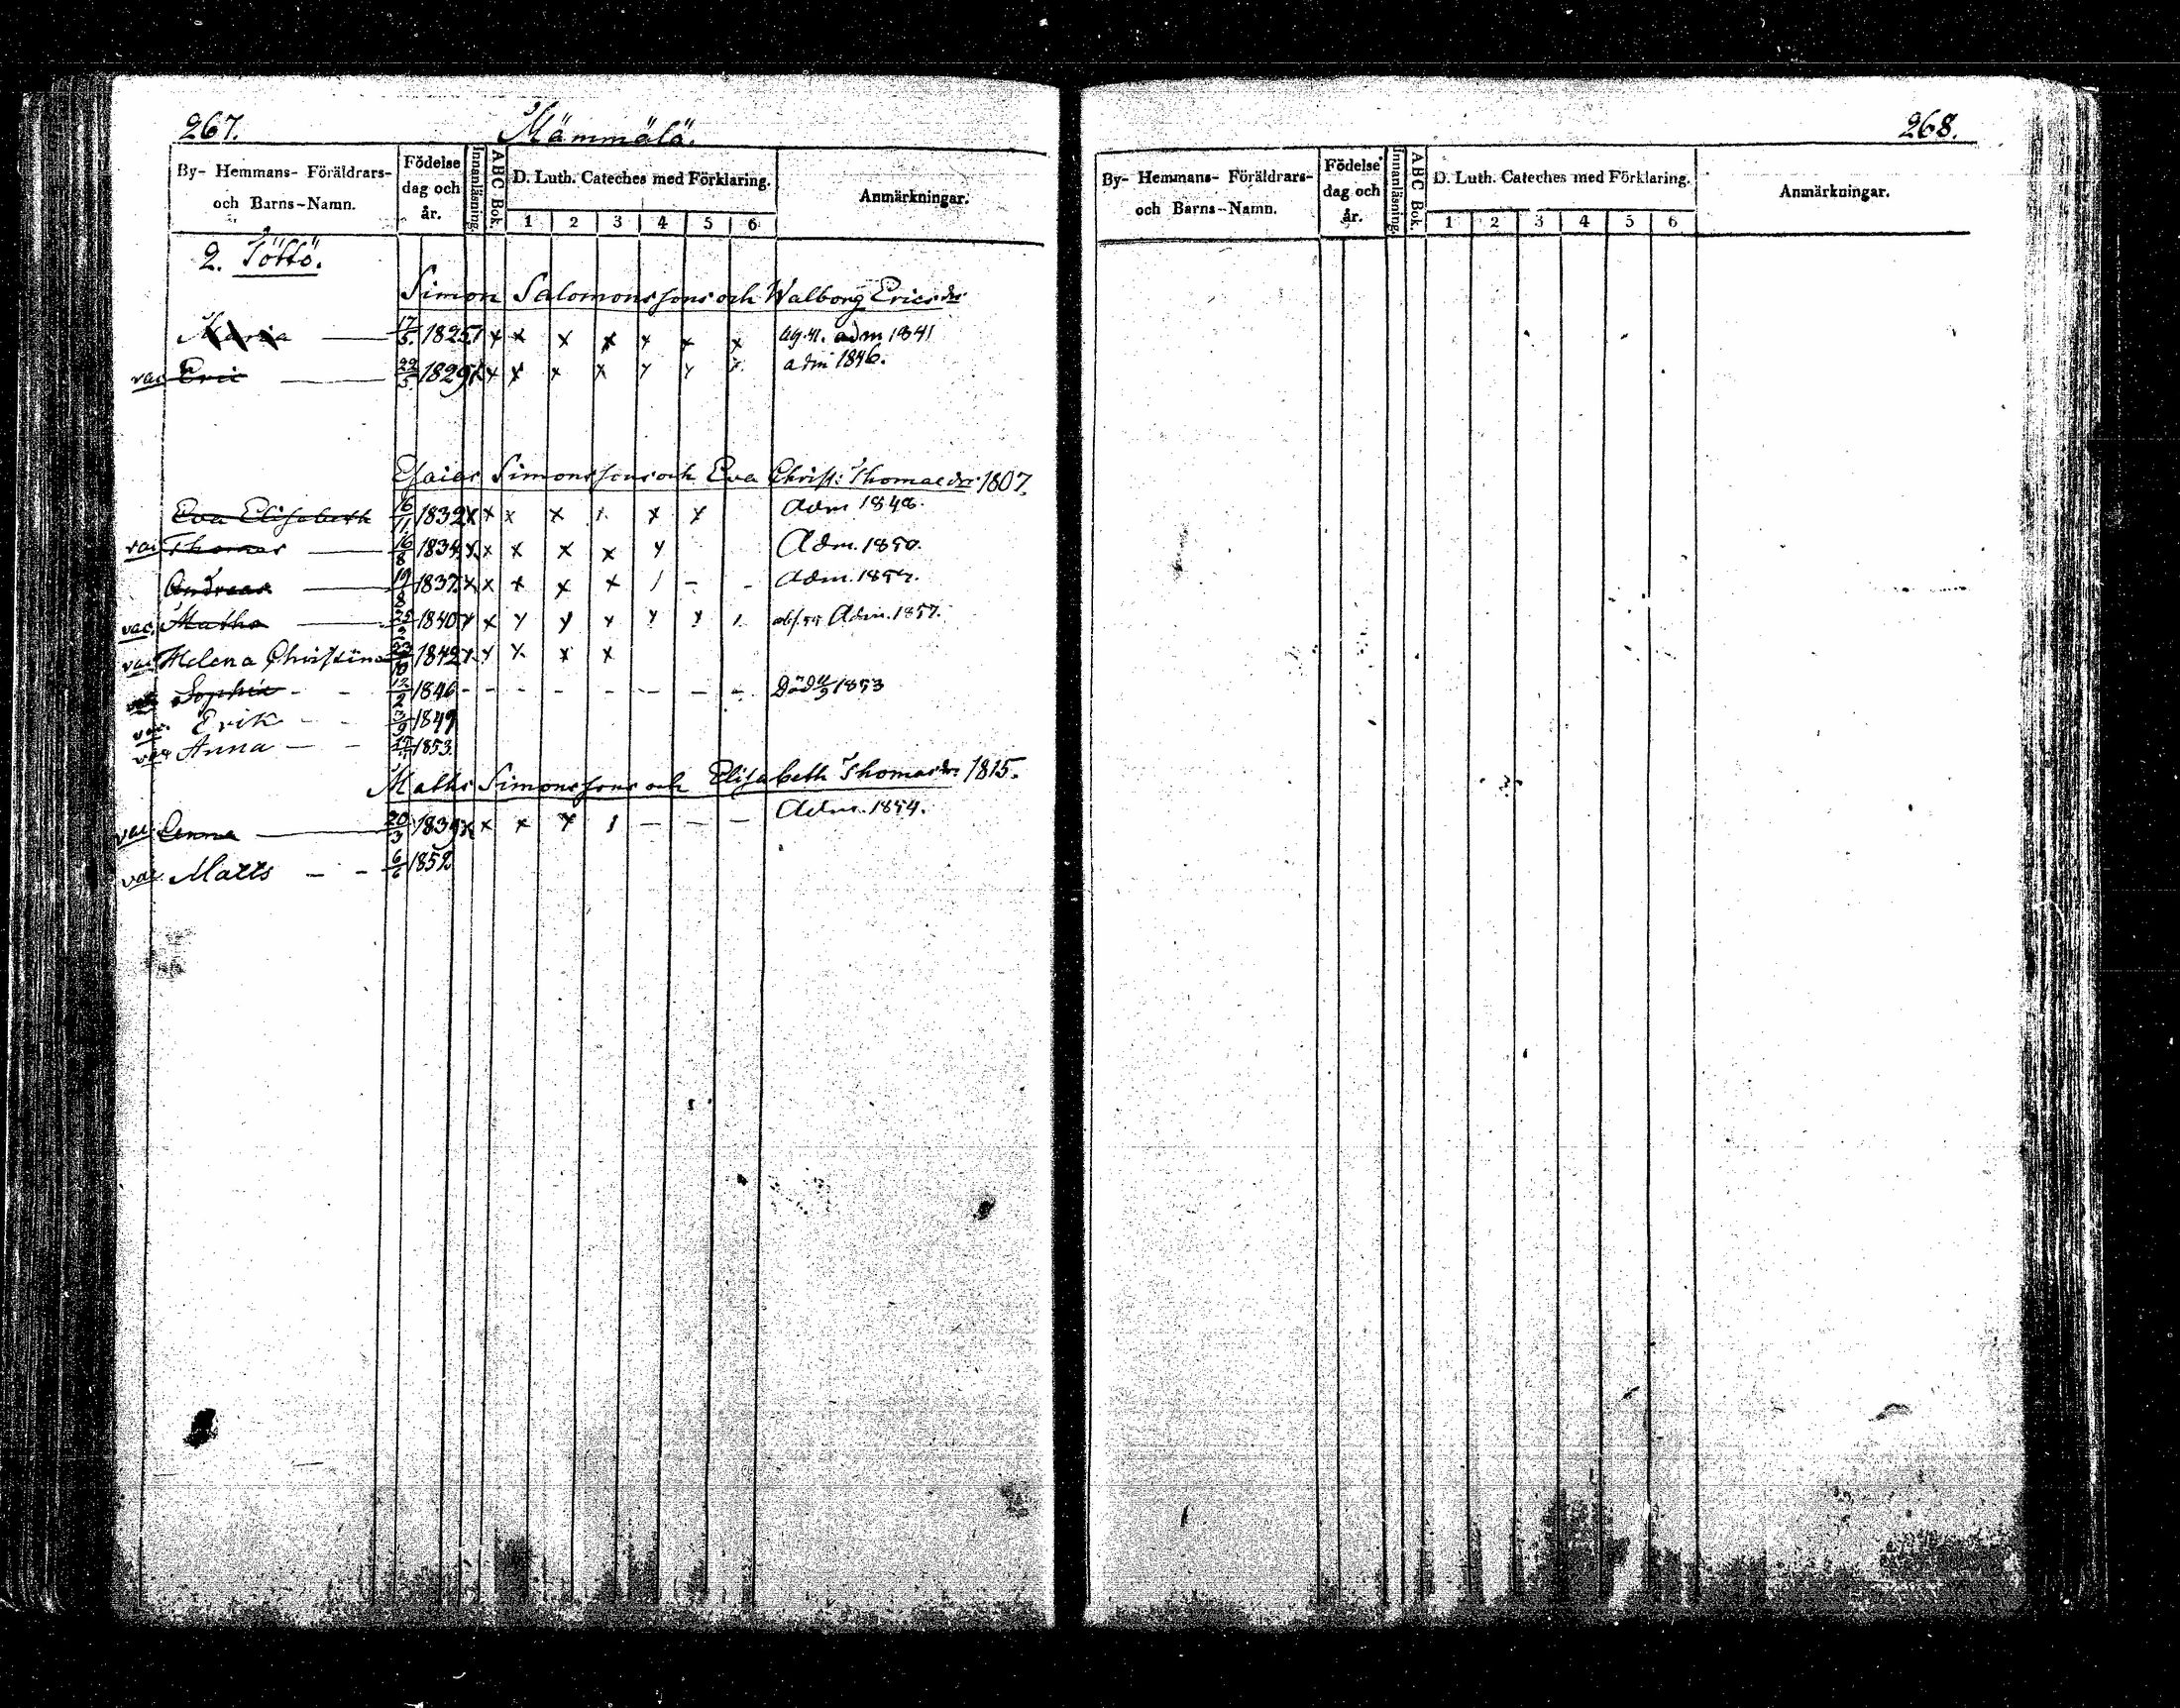 267. Mämmälä.
By- Hemmans- Föräldrars- och Barns-Namn. Födelse dag och år. Innanläsning. ABC Bok. D. Luth. Cateches med Förklaring. 1 2 3 4 5 6 Anmärkningar.
2. Töttö.
Simon Salomonssons och Walborg Ericsdr
Maria — 17/5 1825 x x x x x x x adm 1841
vac Eric — 22/5 1829 x x x x x x x x adm 1846.
Esaias Simonssons och Eva Christ: Thomasdr 1807.
Eva Elisabeth 16/11 1832 x x x x x x x Adm 1848.
vac Thomas — 16/8 1834 x x x x x x Adm. 1850.
Andreas — 19/8 1837. x x x x x / - - Adm. 1854.
vac. Maths — 1840 x x x x x x x Adm. 1857.
vac Helena Christina 23/10 1842 x x x x x
Sophia - - 12/2 1846 - - - - - - - - Död 1853
vac. Erik - - 1849
vac Anna - - 1853.
Maths Simonssons och Elisabeth Thomasdr 1815.
vac Anna — 20/3 1839 x x x x / - - - Adm. 1854.
vac Matts - - 6/6 1852
268.
By- Hemmans- Föräldrars- och Barns-Namn. Födelse dag och år. Innanläsning. ABC Bok. D. Luth. Cateches med Förklaring. 1 2 3 4 5 6 Anmärkningar.